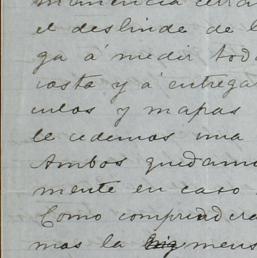 el deslinde de l
ga á medir tod
costa y á entrega
culos y mapas
le cedemos una
Ambos quedamo
mente en caso
Como comprendera
mos la mens